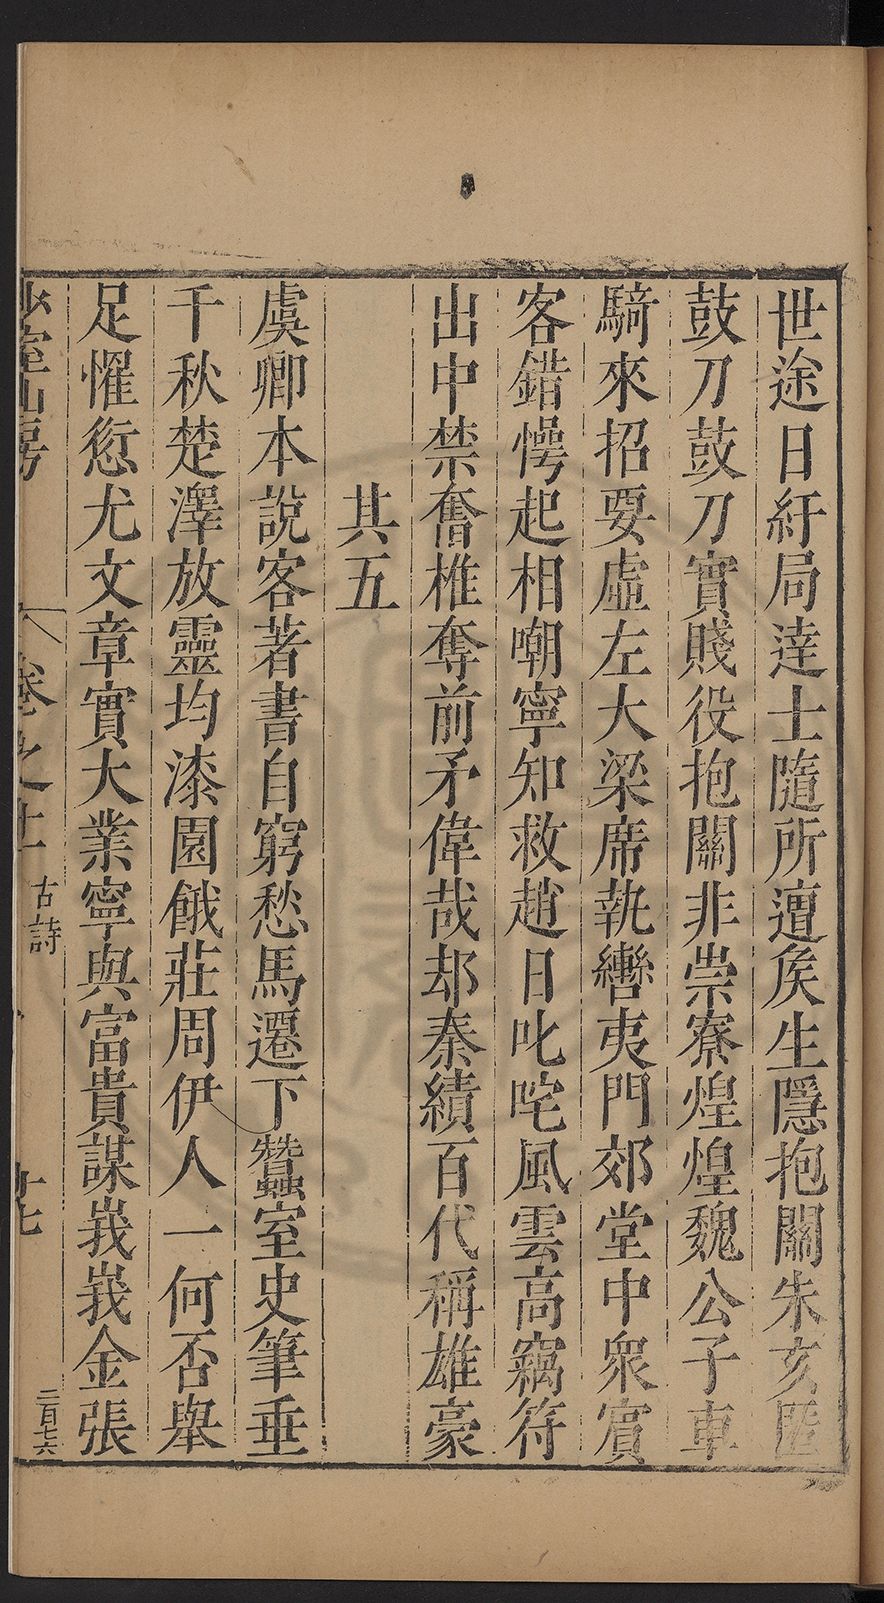 世途日紆局達士隨所遭矦生隱抱關朱亥匿
鼓刀鼓刀實賤役抱關非崇寮煌煌魏公子車
騎來招要虛左大梁席執轡夷門郊堂中衆賓
客錯愕起相嘲寧知救趙日叱咤風雲高竊符
出中禁奮椎奪前矛偉哉却秦績百代稱雄豪
其五
虞卿本說客著書自窮愁馬遷下蠶室史筆垂
千秋楚澤放靈均漆園餓莊周伊人一何否舉
足懼愆尤文章實大業寧與富貴謀峩峩金張
少室山房
卷之十一
古詩
二百七六